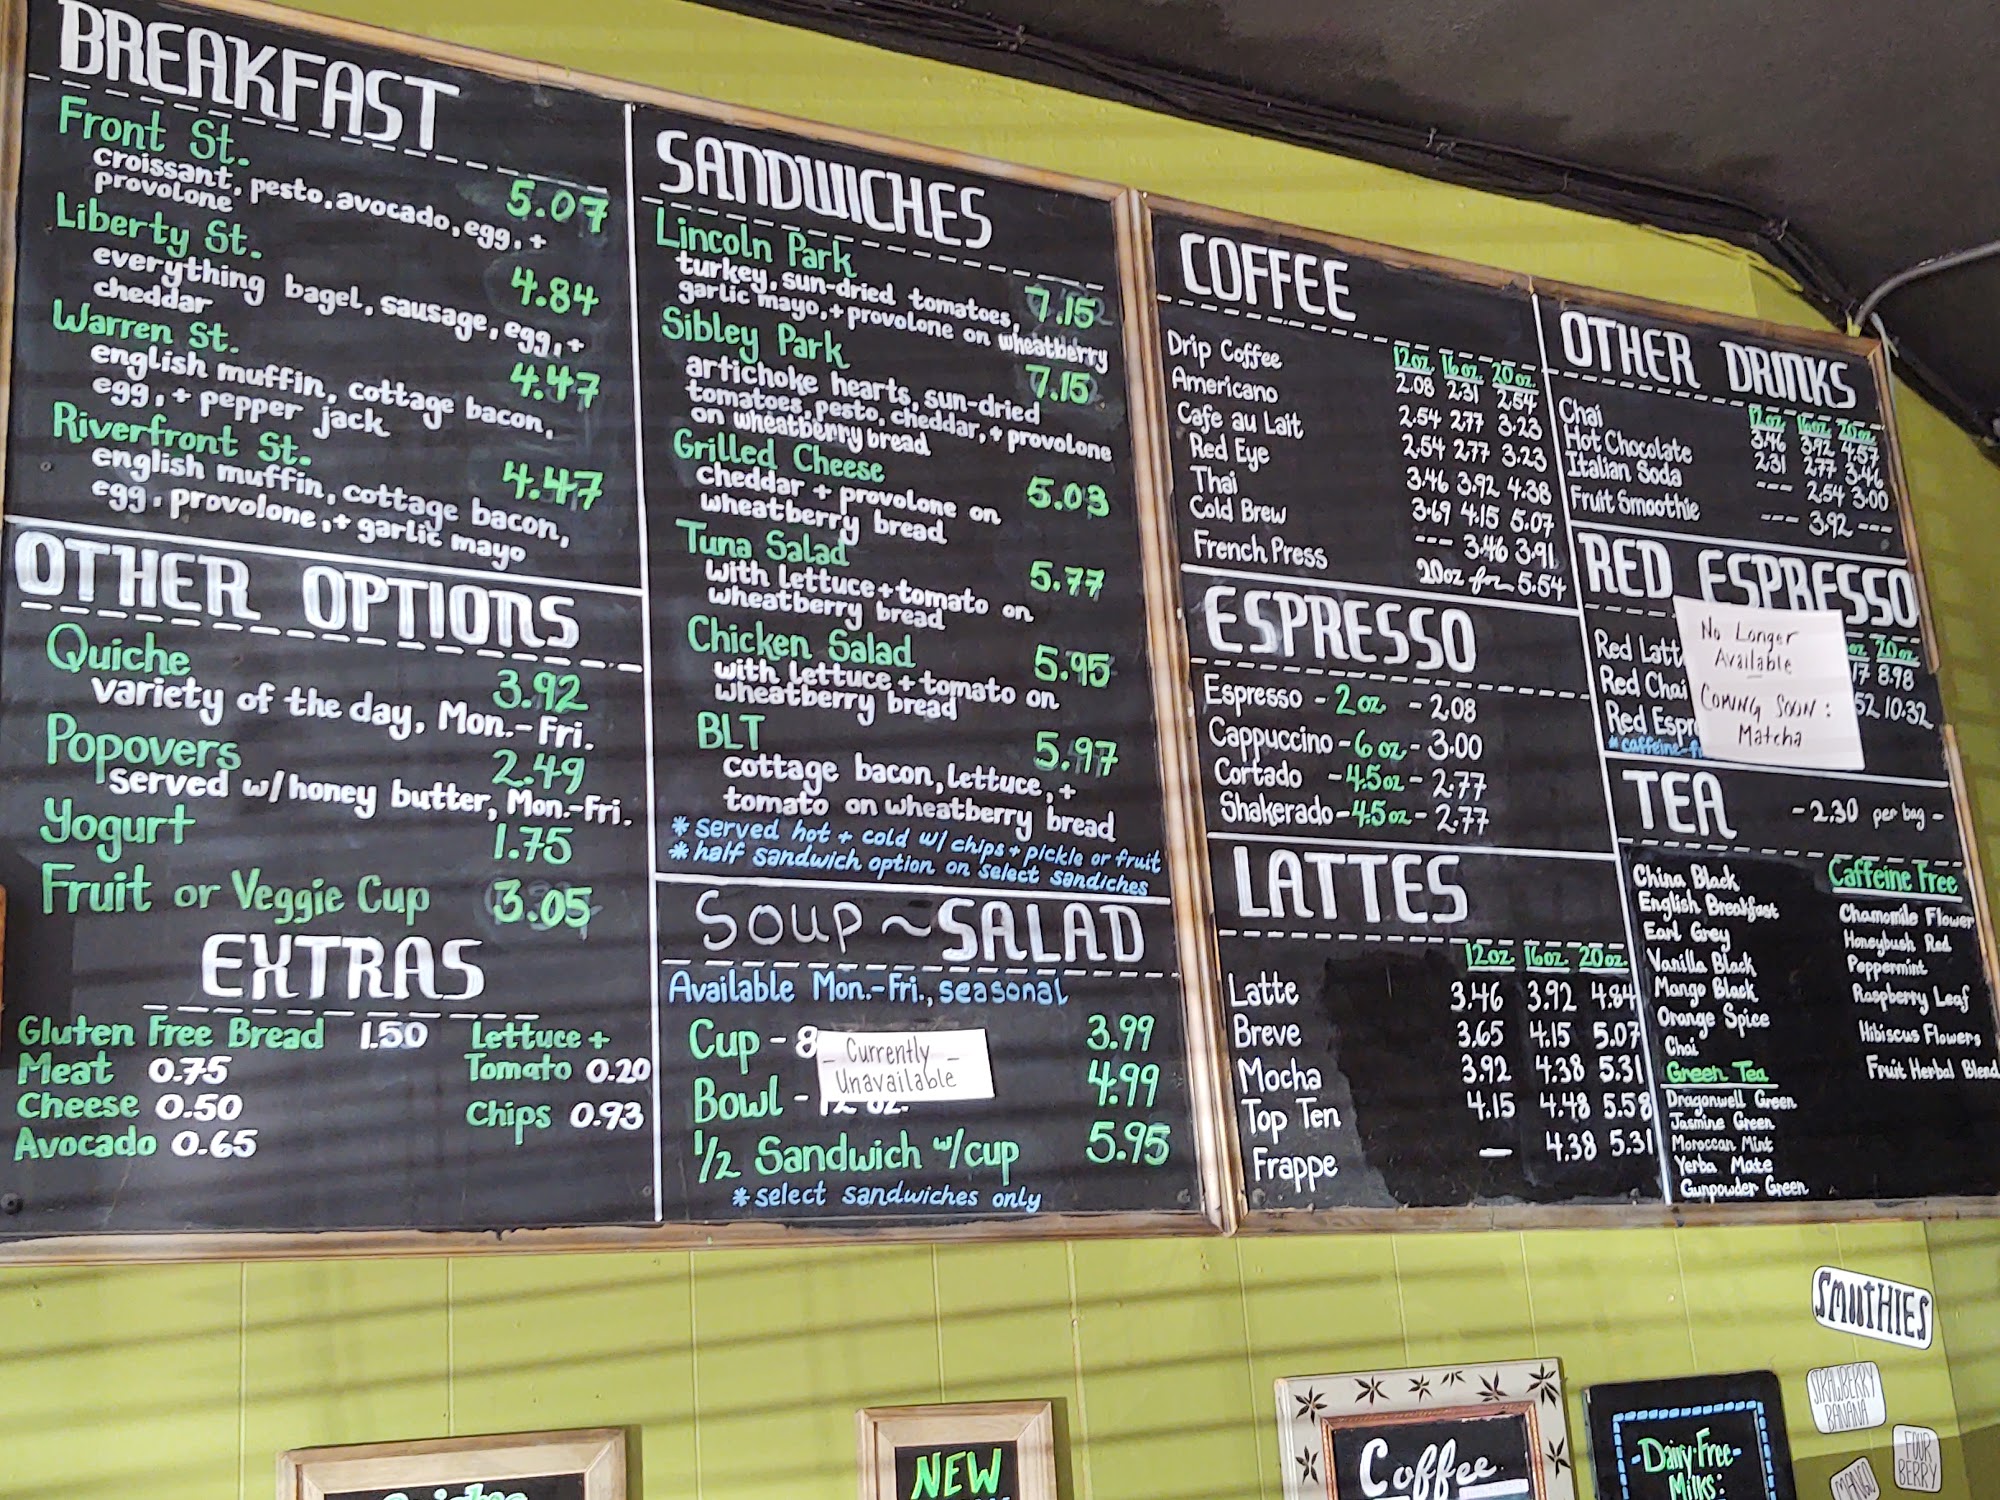 BREAKFAST
Front St. 5.07
croissant, pesto, avocado, egg, +
provolone
Liberty St. 4.84
everything bagel, sausage, egg, +
cheddar
Warren St. 4.47
english muffin, cottage bacon,
egg, + pepper jack
Riverfront St. 4.47
english muffin, cottage bacon,
egg, provolone, + garlic mayo
OTHER OPTIONS
Quiche 3.92
variety of the day, Mon.-Fri.
Popovers 2.49
served w/honey butter, Mon.-Fri.
Yogurt 1.75
Fruit or Veggie Cup 3.05
EXTRAS
Gluten Free Bread 1.50
Meat 0.75
Cheese 0.50
Avocado 0.65
Lettuce +
Tomato 0.20
Chips 0.93
SANDWICHES
Lincoln Park 7.15
turkey, sun-dried tomatoes,
garlic mayo, + provolone on wheatberry
Sibley Park 7.15
artichoke hearts, sun-dried
tomatoes, pesto, cheddar, + provolone
on wheatberry bread
Grilled Cheese 5.03
cheddar + provolone on
wheatberry bread
Tuna Salad 5.77
with lettuce + tomato on
wheatberry bread
Chicken Salad 5.95
with lettuce + tomato on
wheatberry bread
BLT 5.97
cottage bacon, lettuce, +
tomato on wheatberry bread
* served hot + cold w/ chips + pickle or fruit
* half sandwich option on select sandiches
SOUP ~ SALAD
Available Mon.-Fri., seasonal
Cup - 8 3.99
Bowl - 12 oz. 4.99
- Currently -
Unavailable
1/2 Sandwich w/cup 5.95
* select sandwiches only
COFFEE
12oz. 16oz. 20oz.
Drip Coffee 2.08 2.31 2.54
Americano 2.54 2.77 3.23
Cafe au Lait 2.54 2.77 3.23
Red Eye 3.46 3.92 4.38
Thai 3.69 4.15 5.07
Cold Brew --- 3.46 3.91
French Press 20oz for 5.54
ESPRESSO
Espresso - 2 oz. - 2.08
Cappuccino - 6 oz - 3.00
Cortado - 4.5 oz - 2.77
Shakerado - 4.5 oz - 2.77
LATTES
12oz. 16oz. 20oz.
Latte 3.46 3.92 4.84
Breve 3.65 4.15 5.07
Mocha 3.92 4.38 5.31
Top Ten 4.15 4.48 5.58
Frappe — 4.38 5.31
OTHER DRINKS
12oz. 16oz. 20oz.
Chai 3.46 3.92 4.57
Hot Chocolate 2.31 2.77 3.46
Italian Soda --- 2.54 3.00
Fruit Smoothie --- 3.92 ---
RED ESPRESSO
oz. 20oz.
Red Latt 17 8.98
Red Chai 52 10.32
Red Espr
* caffeine-f
No Longer
Available
COMING SOON:
Matcha
TEA - 2.30 per bag -
China Black
English Breakfast
Earl Grey
Vanilla Black
Mango Black
Orange Spice
Chai
Green Tea
Dragonwell Green
Jasmine Green
Moroccan Mint
Yerba Mate
Gunpowder Green
Caffeine Free
Chamomile Flower
Honeybush Red
Peppermint
Raspberry Leaf
Hibiscus Flowers
Fruit Herbal Blend
SMOOTHIES
STRAWBERRY
BANANA
FOUR
BERRY
MANGO
NEW
Coffee
-Dairy-Free-
Milks: